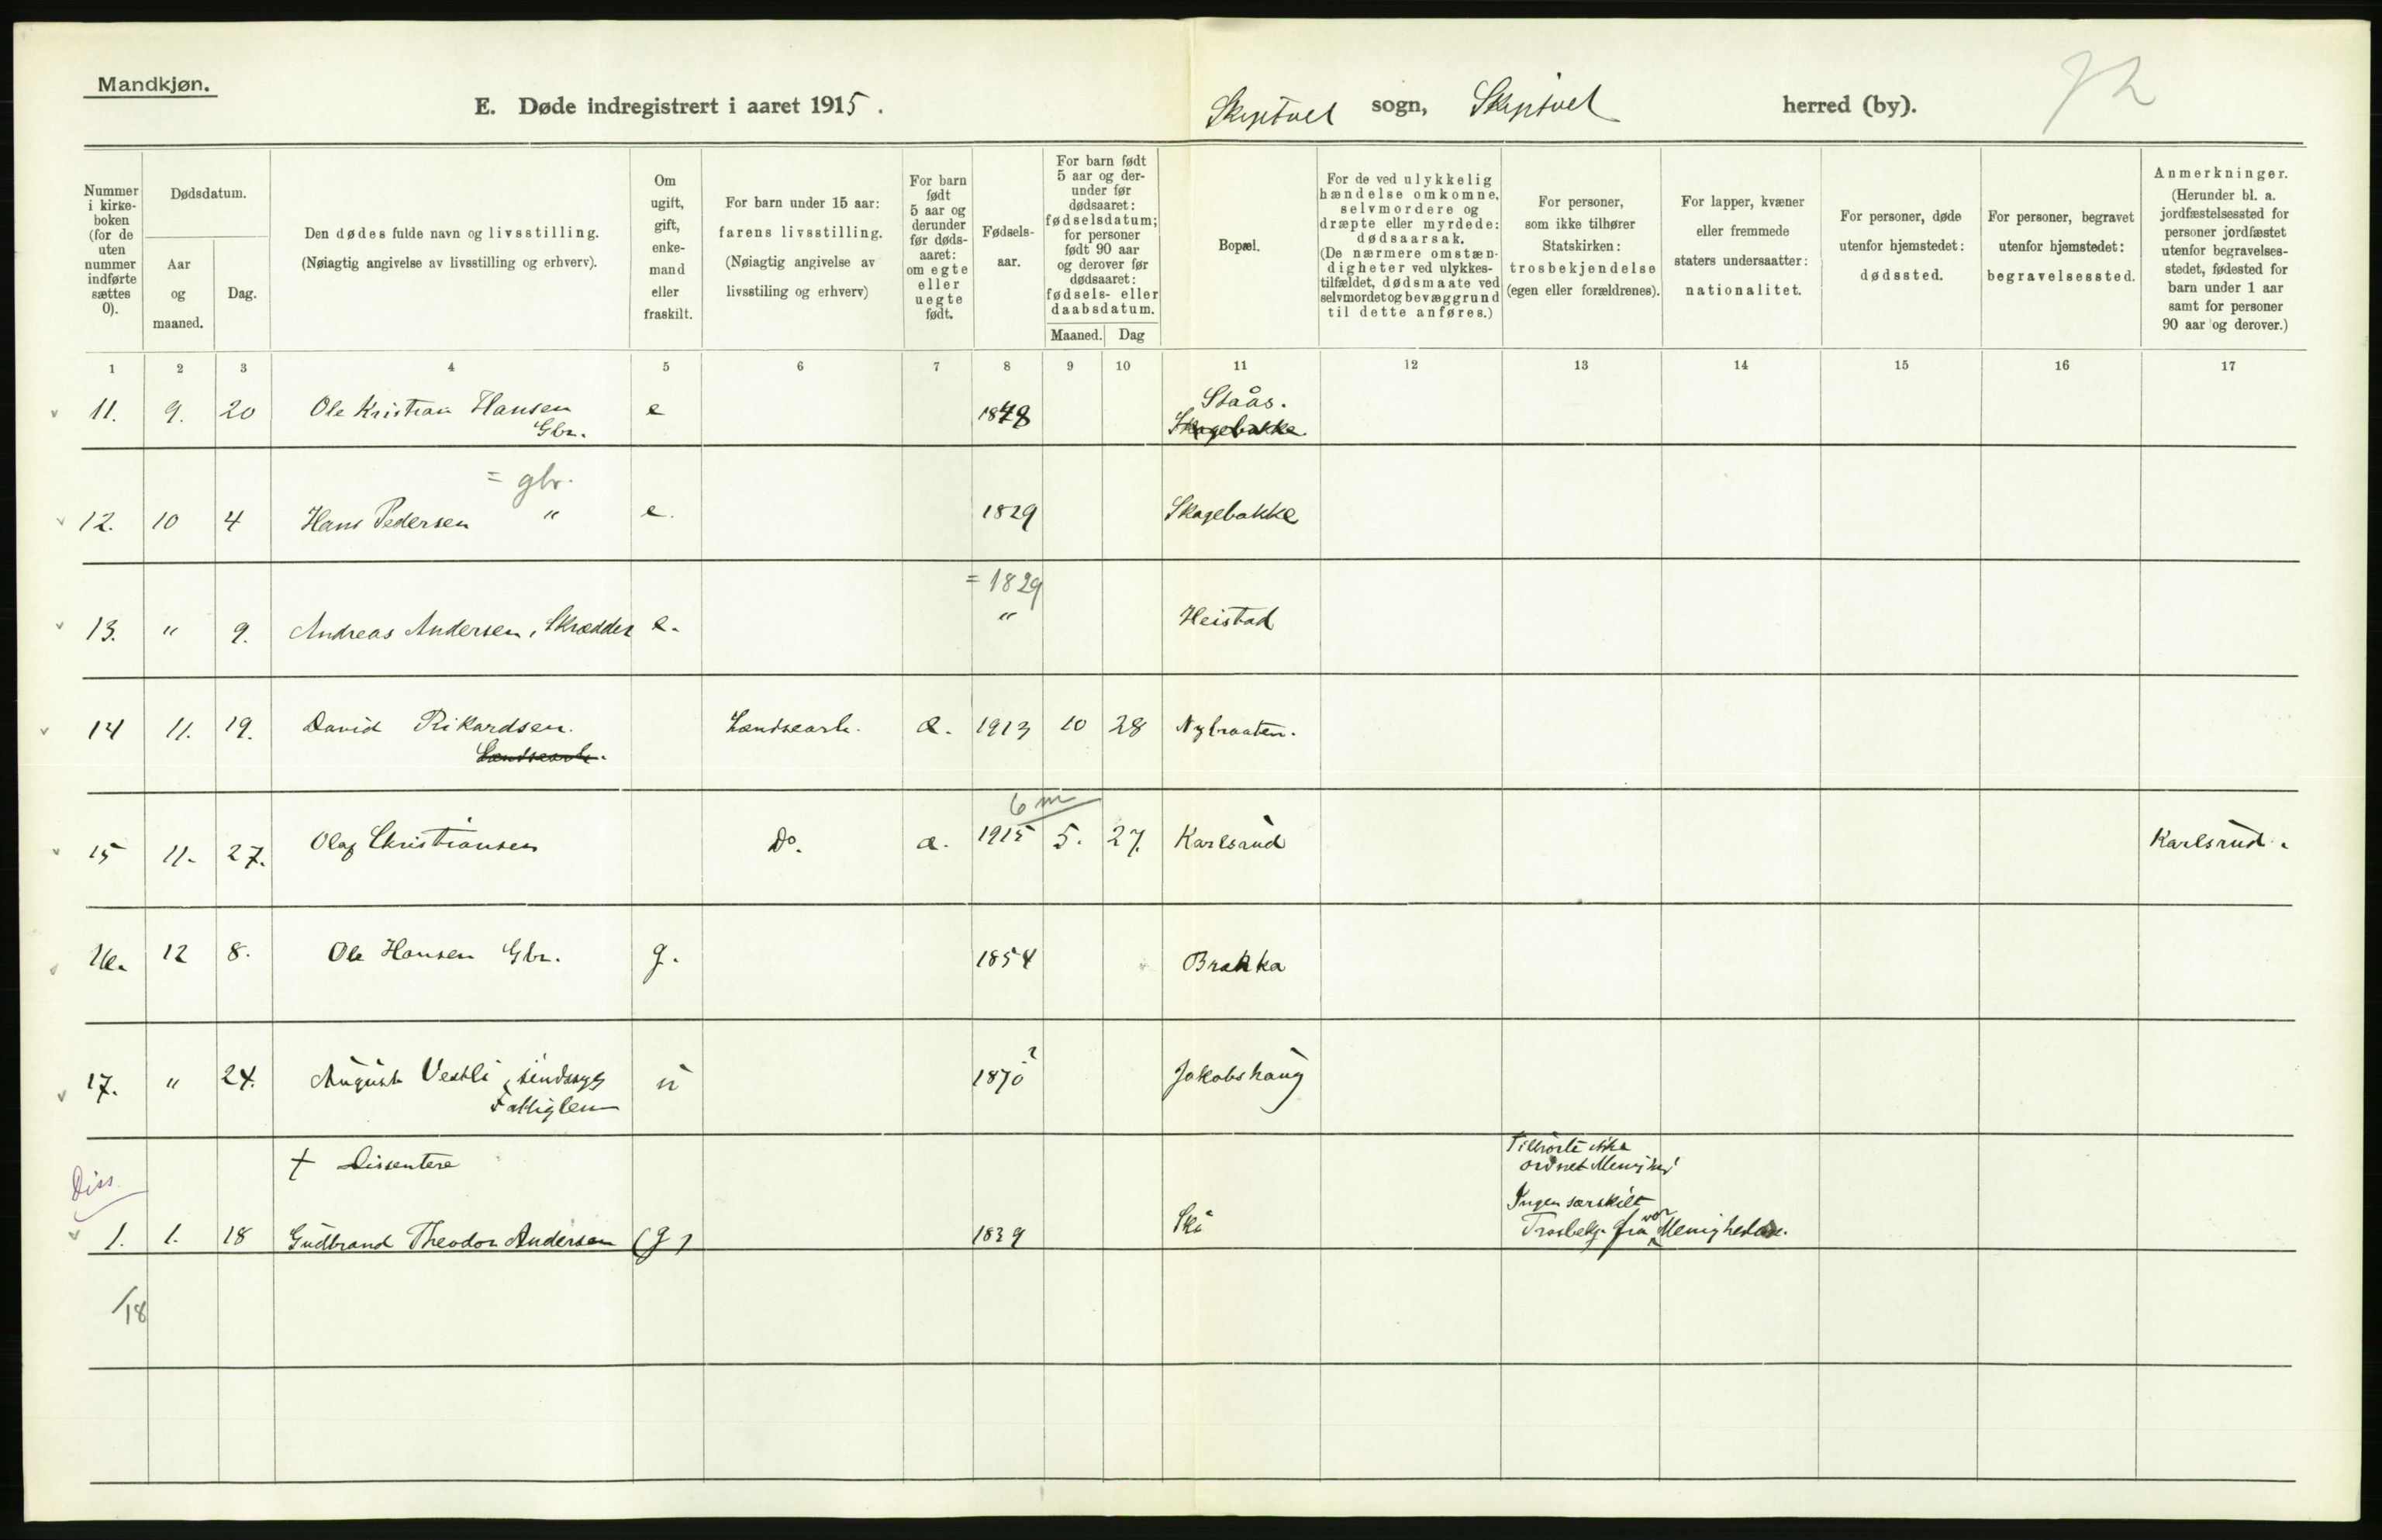 Mandkjøn.
E. Døde indregistrert i aaret 1915.
Skiptvet sogn, Skiptvet herred (by).
72
Nummer i kirke-boken (for de uten nummer indførte sættes 0).
Dødsdatum.
Aar og maaned.
Dag.
Den dødes fulde navn og livsstilling.
(Nøiagtig angivelse av livsstilling og erhverv).
Om ugift, gift, enke-mand eller fraskilt.
For barn under 15 aar: farens livsstilling.
(Nøiagtig angivelse av livsstiling og erhverv)
For barn født 5 aar og derunder før døds-aaret: om egte eller uegte født.
Fødsels-aar.
For barn født 5 aar og der-under før dødsaaret: fødselsdatum; for personer født 90 aar og derover før dødsaaret: fødsels- eller daabsdatum.
Maaned. Dag
Bopæl.
For de ved ulykkelig hændelse omkomne, selvmordere og dræpte eller myrdede: dødsaarsak.
(De nærmere omstæn-digheter ved ulykkes-tilfældet, dødsmaate ved selvmordet og bevæggrund til dette anføres.)
For personer, som ikke tilhører Statskirken: trosbekjendelse (egen eller forældrenes).
For lapper, kvæner eller fremmede staters undersaatter: nationalitet.
For personer, døde utenfor hjemstedet: dødssted.
For personer, begravet utenfor hjemstedet: begravelsessted.
Anmerkninger.
(Herunder bl. a. jordfæstelsessted for personer jordfæstet utenfor begravelses-stedet, fødested for barn under 1 aar samt for personer 90 aar og derover.)
1 2 3 4 5 6 7 8 9 10 11 12 13 14 15 16 17
11. 9. 20 Ole Kristian Hansen e 1848 Staås.
Gbr. Skagebakke
= gbr.
12. 10 4 Hans Pedersen " e. 1829 Skagebakke
= 1829
13. " 9. Andreas Andersen, Skrædder e. " Heistad
14 11. 19. David Rikardsen. Landsearb. e. 1913 10 28 Nybraaten.
Landsearb.
6 m
15 11. 27. Olaf Christiansen Do. e. 1915 5. 27. Karlsrud Karlsrud.
16. 12 8. Ole Hansen Gbr. g. 1854 Brekka
17. " 24. August Vestli, sindssyg u 1870 ? Jakobshaug
Fattiglem
Diss.
+ Dissentere Tilhørte ikke
ordnet Menighed
Ingen særskilt
1. 1. 18 Gudbrand Theodor Andersen (g) 1839 Ski Trosbekj. fra vor Menighed
/18